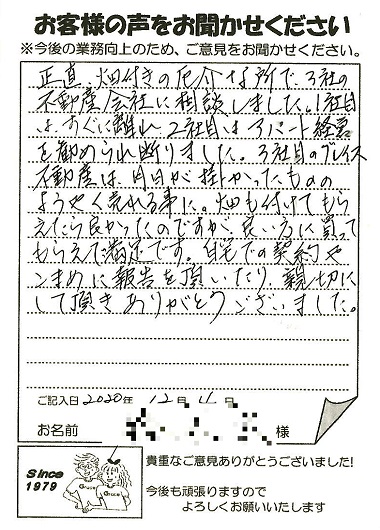 お客様の声をお聞かせください
※今後の業務向上のため、ご意見をお聞かせください。
正直、畑付きの厄介な所で、3社の
不動産会社に相談しました。1社目
は、すぐに離れ 2社目は アパート経営
を勧められ断りました。3社目のグレイス
不動産は、月日が掛かったものの
ようやく売れる事に。畑も付けてもら
えたら良かったのですが、良い方に買って
もらえて満足です。自宅での契約や
こまめに報告を頂いたり、親切に
して頂きありがとうございました。
ご記入日 2020年 12月 日
お名前 様
Since
1979
Grace
Grace
貴重なご意見ありがとうございました!
今後も頑張りますので
よろしくお願いいたします